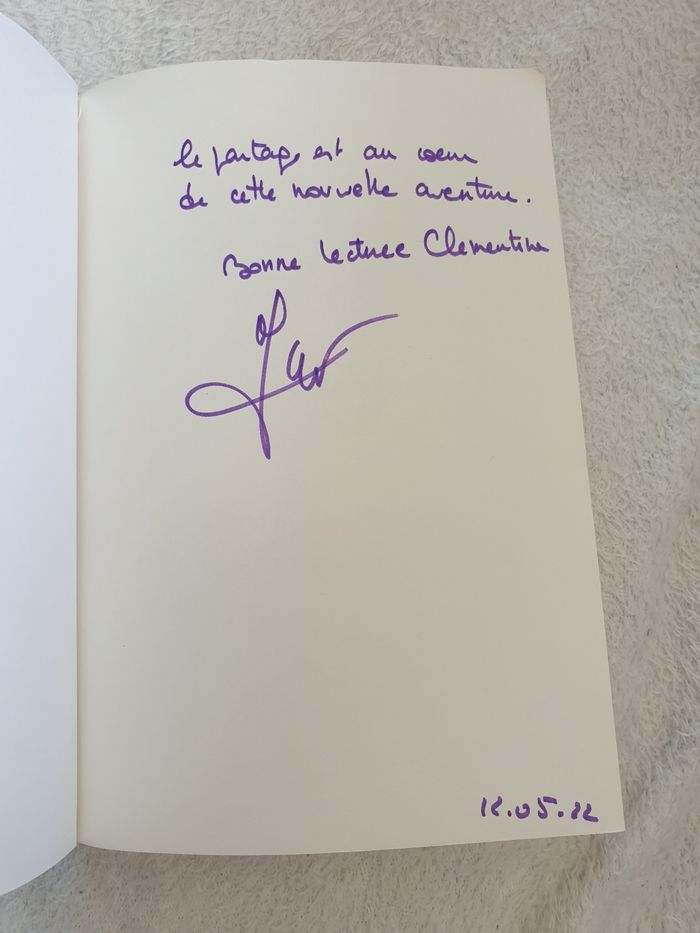 le partage est au coeur
de cette nouvelle aventure.
Bonne lecture Clementine